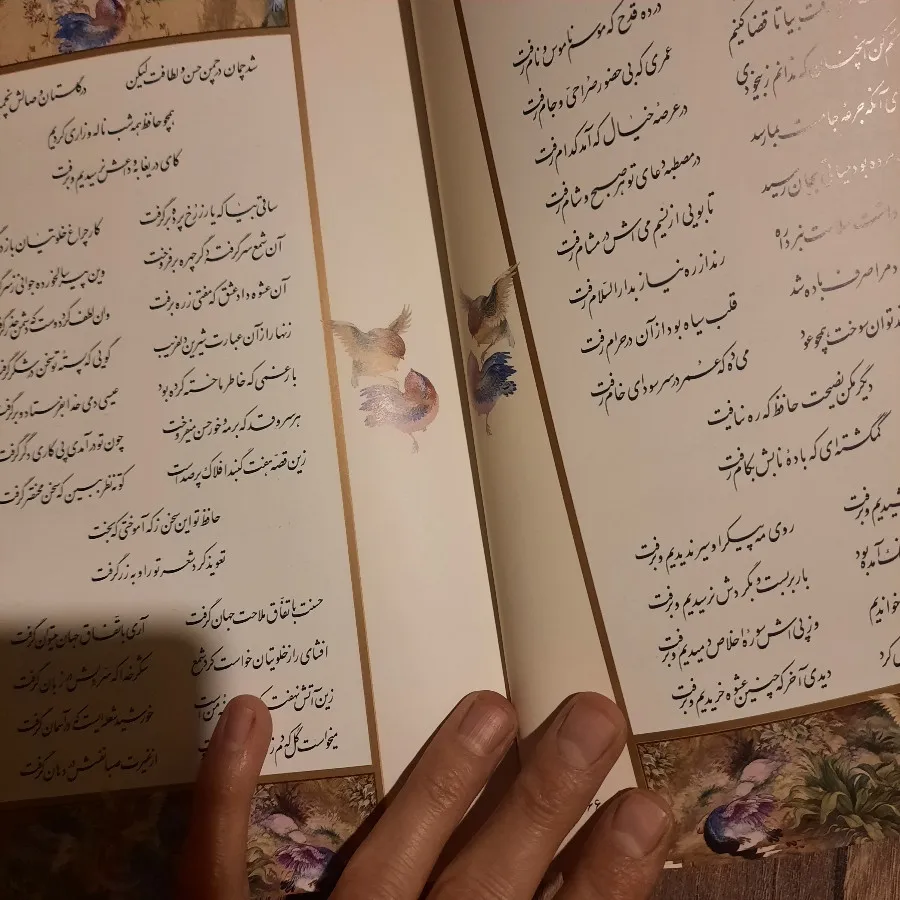 درده قدح که موسم ناموس و نام رفت
ت بیا تا قضا کنیم عمری که بی حضور صراحی و جام رفت
کن آنچنان که ندانم ز بیخودی در عرصهٔ خیال که آمد کدام رفت
آنکه جرعهٔ جامت بما رسد در مصطبه دعای تو هر صبح و شام رفت
مرده بود حیاتی بجان رسید تا بویی از نسیم می اش در مشام رفت
داشت سلامت نبرد راه رند از ره نیاز بدارالسلام رفت
د مرا صرف باده شد قلب سیاه بود از آن در حرام رفت
ند توان سوخت همچو عود می ده که عمر در سر سودای خام رفت
دیگر مکن نصیحت حافظ که ره نیافت
گمگشته‌ای که بادهٔ نابش بکام رفت
شیدیم و برفت روی مه پیکر او سیر ندیدیم و برفت
نگ آمده بود بار بربست و بگردش نرسیدیم و برفت
خواندیم وز پی اش سورهٔ اخلاص دمیدیم و برفت
ی کرد دیدی آخر که چنین عشوه خریدیم و برفت
شد چمان در چمن حسن و لطافت لیکن در گلستان وصالش نچمید
همچو حافظ همه شب ناله و زاری کردیم
کای دریغا بوداعش نرسیدیم و برفت
ساقی بیا که یار ز رخ پرده برگرفت کار چراغ خلوتیان باز د
آن شمع سرگرفته دگر چهره برفروخت وین پیر سالخورده جوانی ز سر گر
آن عشوه داد عشق که مفتی ز ره برفت وان لطف کرد دوست که دشمن حذر گرف
زنهار از آن عبارت شیرین دلفریب گویی که پستهٔ تو سخن در شکر گرفت
بار غمی که خاطر ما خسته کرده بود عیسی دمی خدا بفرستاد و برگرفت
هر سروقد که بر مه و خور حسن میفروخت چون تو درآمدی پی کاری دگر گرفت
زین قصه هفت گنبد افلاک پر صداست کوته نظر ببین که سخن مختصر گرفت
حافظ تو این سخن ز که آموختی که بخت
تعویذ کرد شعر تو را و به زر گرفت
حسنت باتفاق ملاحت جهان گرفت آری باتفاق جهان میتوان گرفت
افشای راز خلوتیان خواست کرد شمع شکر خدا که سر دلش در زبان گرفت
زین آتش نهفته من است خورشید شعله‌ایست که در آسمان گرفت
میخواست گل که دم ز از غیرت صبا نفسش در دهان گرفت